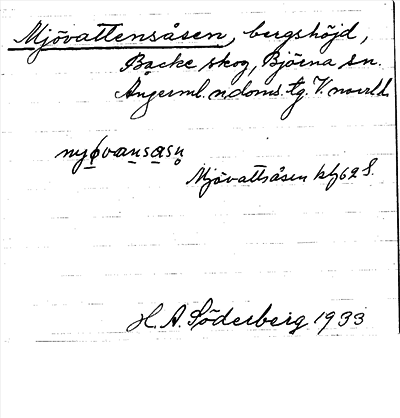 Mjövattensåsen, bergshöjd,
Backe skog, Björna sn.
Ångerml. n. doms. tg. V. norrld.
nyøvansasn
Mjövattsåsen kbl 62 S.
H. A. Söderberg 1933